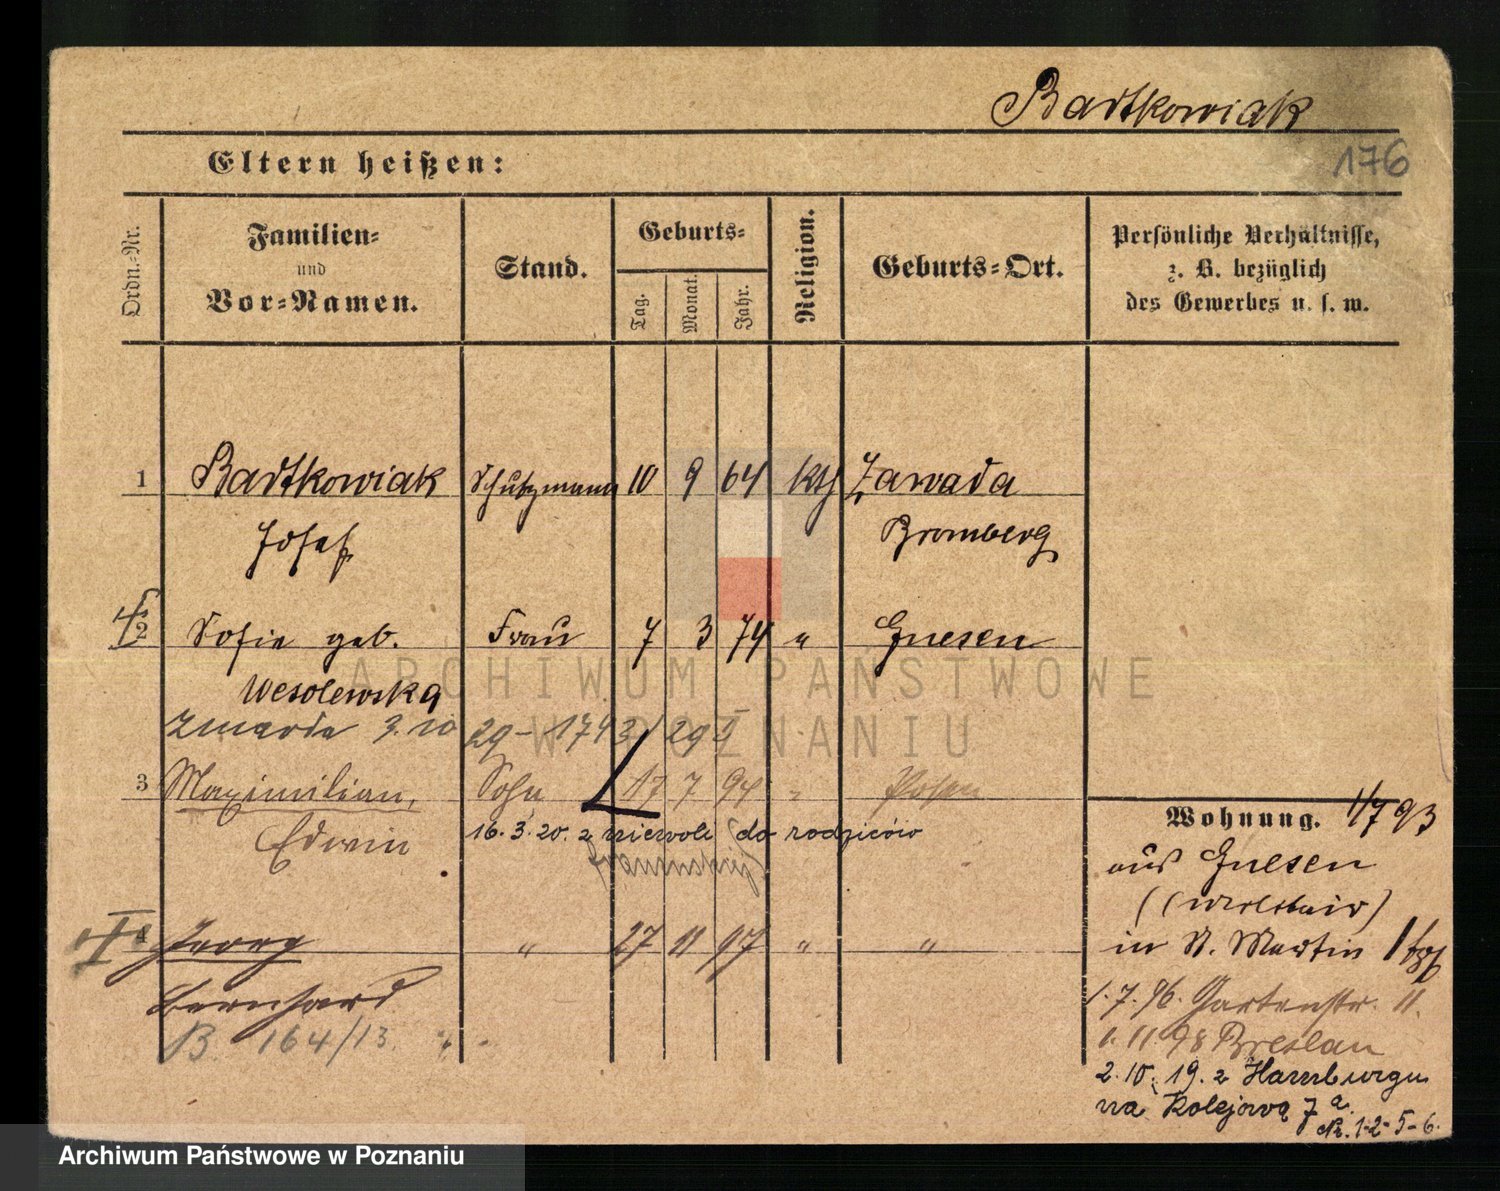 Bartkowiak
176
Eltern heißen:
Ordn.-Nr.
Familien-
und
Vor-Namen.
Stand.
Geburts-
Tag.
Monat.
Jahr.
Religion.
Geburts-Ort.
Persönliche Verhältnisse,
z. B. bezüglich
des Gewerbes u. s. w.
1 Bartkowiak Schutzmann 10 9 64 kth Zawada
Josef Bromberg
2 Sofie geb. Frau 7 3 74 " Gnesen
Wesolewska
zmarła 3.10 29 - 1743/29 II
3 Maximilian, Sohn 17 7 94 " Posen
Edwin 16.3.20. z niewoli do rodziców
4 Georg " 27 11 97 " "
Bernhard
B. 164/13.
Wohnung. 1/7 93
aus Gnesen
in St. Martin
1.7.96. Gartenstr. 11.
1.11 98 Breslau
2.10.19. z Hamburga
na Kolejową 7 a.
Nr. 1-2-5-6.
ARCHIWUM PAŃSTWOWE
W POZNANIU
Archiwum Państwowe w Poznaniu